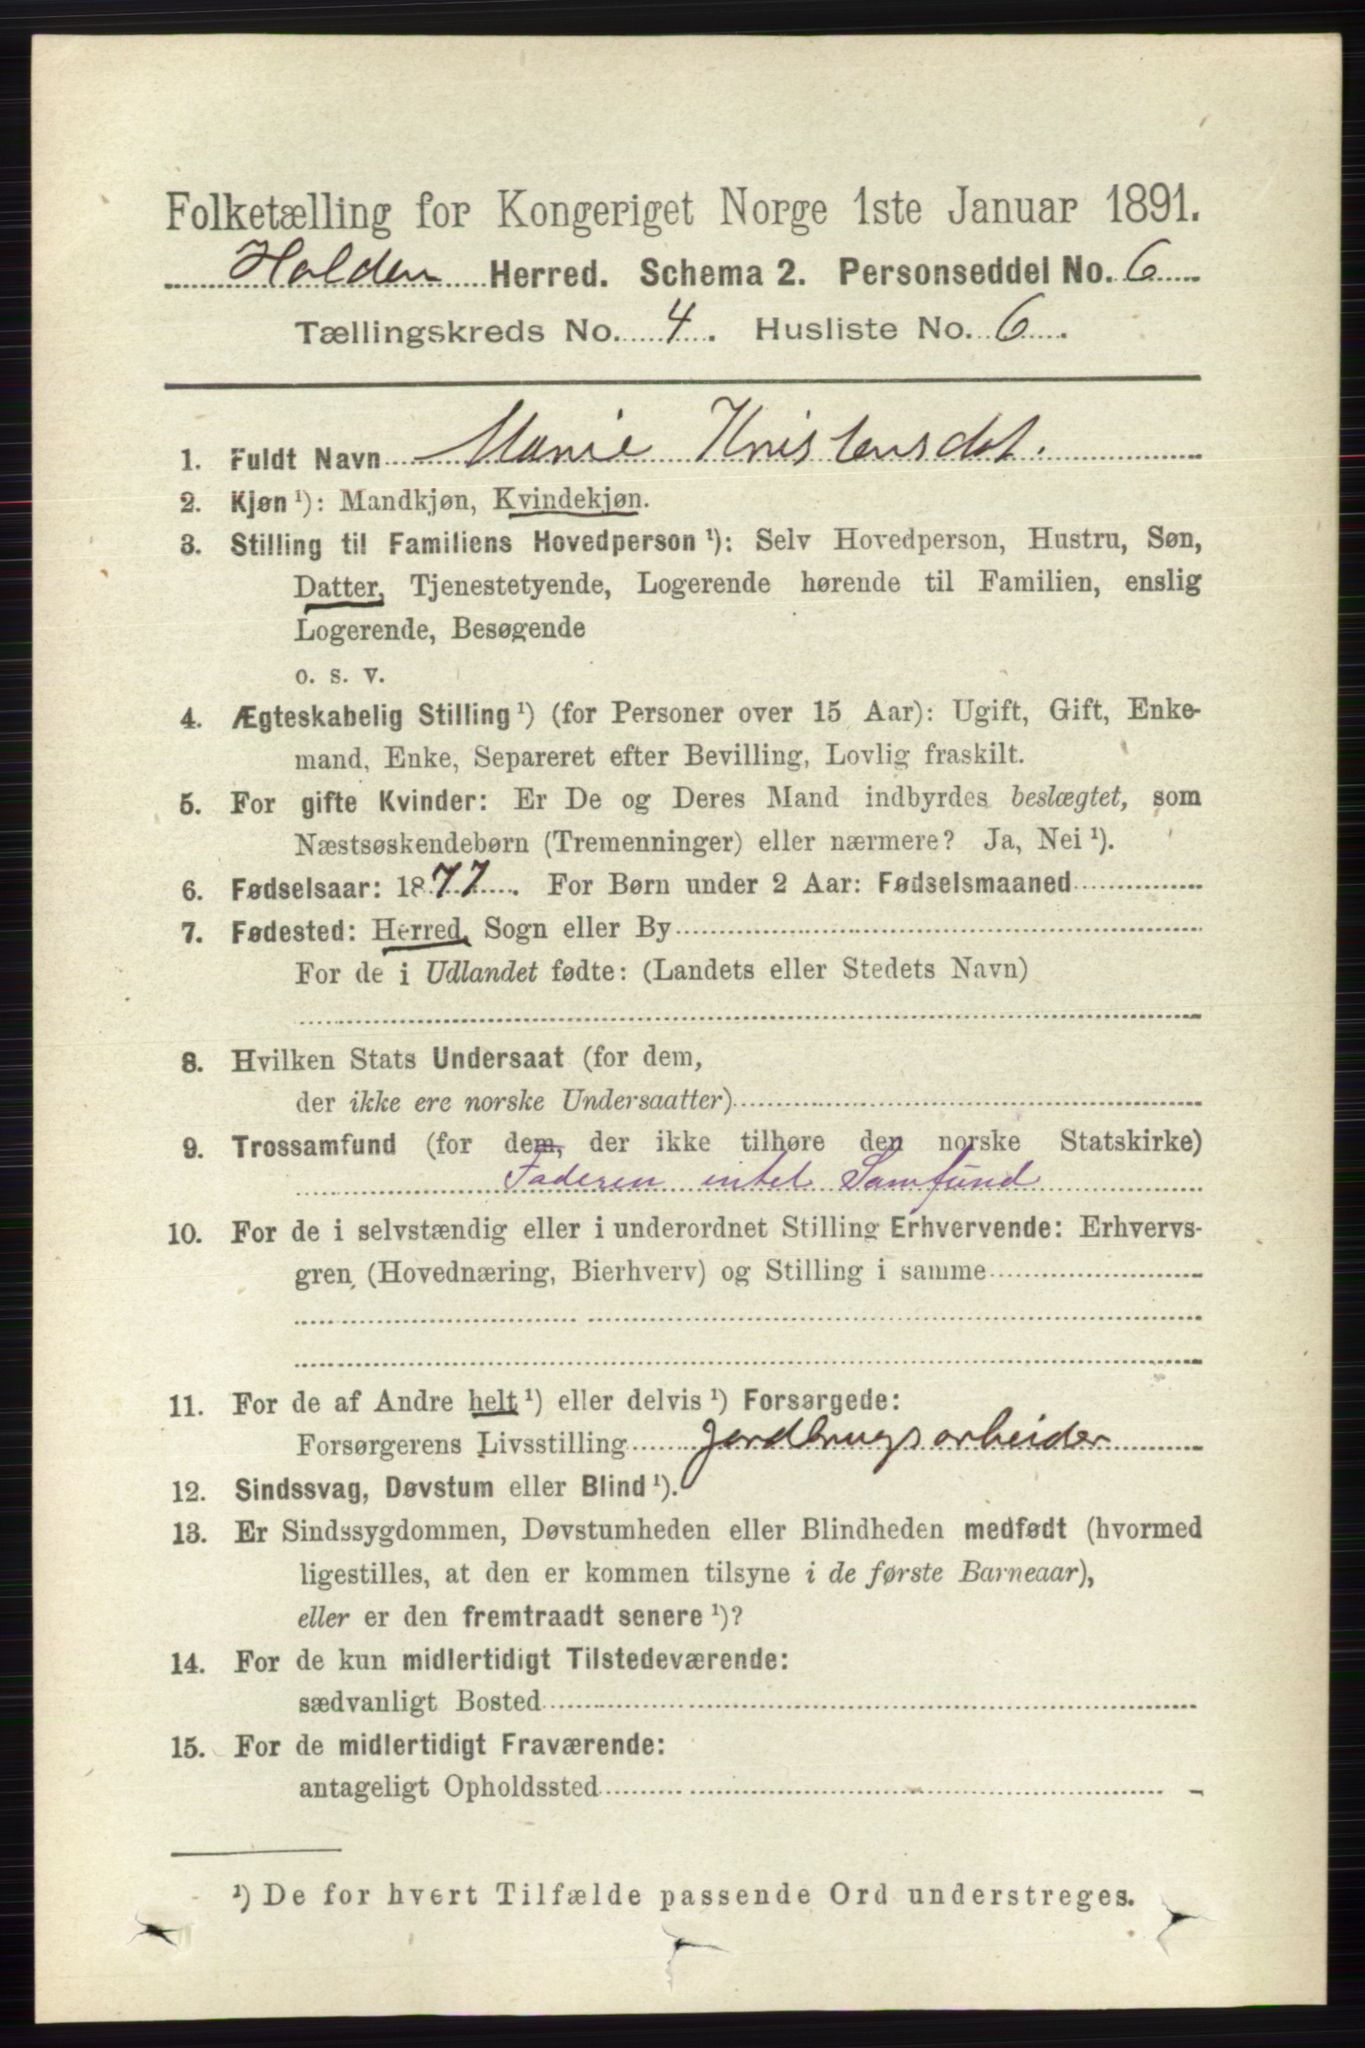 Folketælling for Kongeriget Norge 1ste Januar 1891.
Holden Herred. Schema 2. Personseddel No. 6
Tællingskreds No. 4. Husliste No. 6.
1. Fuldt Navn Marie Kristensdat.
2. Kjøn ¹): Mandkjøn, Kvindekjøn.
3. Stilling til Familiens Hovedperson ¹): Selv Hovedperson, Hustru, Søn,
Datter, Tjenestetyende, Logerende hørende til Familien, enslig
Logerende, Besøgende
o. s. v.
4. Ægteskabelig Stilling ¹) (for Personer over 15 Aar): Ugift, Gift, Enke-
mand, Enke, Separeret efter Bevilling, Lovlig fraskilt.
5. For gifte Kvinder: Er De og Deres Mand indbyrdes beslægtet, som
Næstsøskendebørn (Tremenninger) eller nærmere? Ja, Nei ¹).
6. Fødselsaar: 1877. For Børn under 2 Aar: Fødselsmaaned
7. Fødested: Herred, Sogn eller By
For de i Udlandet fødte: (Landets eller Stedets Navn)
8. Hvilken Stats Undersaat (for dem,
der ikke ere norske Undersaatter)
9. Trossamfund (for dem, der ikke tilhøre den norske Statskirke)
Faderen intet Samfund
10. For de i selvstændig eller i underordnet Stilling Erhvervende: Erhvervs-
gren (Hovednæring, Bierhverv) og Stilling i samme
11. For de af Andre helt ¹) eller delvis ¹) Forsørgede:
Forsørgerens Livsstilling Jordbrugsarbeider
12. Sindssvag, Døvstum eller Blind ¹).
13. Er Sindssygdommen, Døvstumheden eller Blindheden medfødt (hvormed
ligestilles, at den er kommen tilsyne i de første Barneaar),
eller er den fremtraadt senere ¹)?
14. For de kun midlertidigt Tilstedeværende:
sædvanligt Bosted
15. For de midlertidigt Fraværende:
antageligt Opholdssted
¹) De for hvert Tilfælde passende Ord understreges.